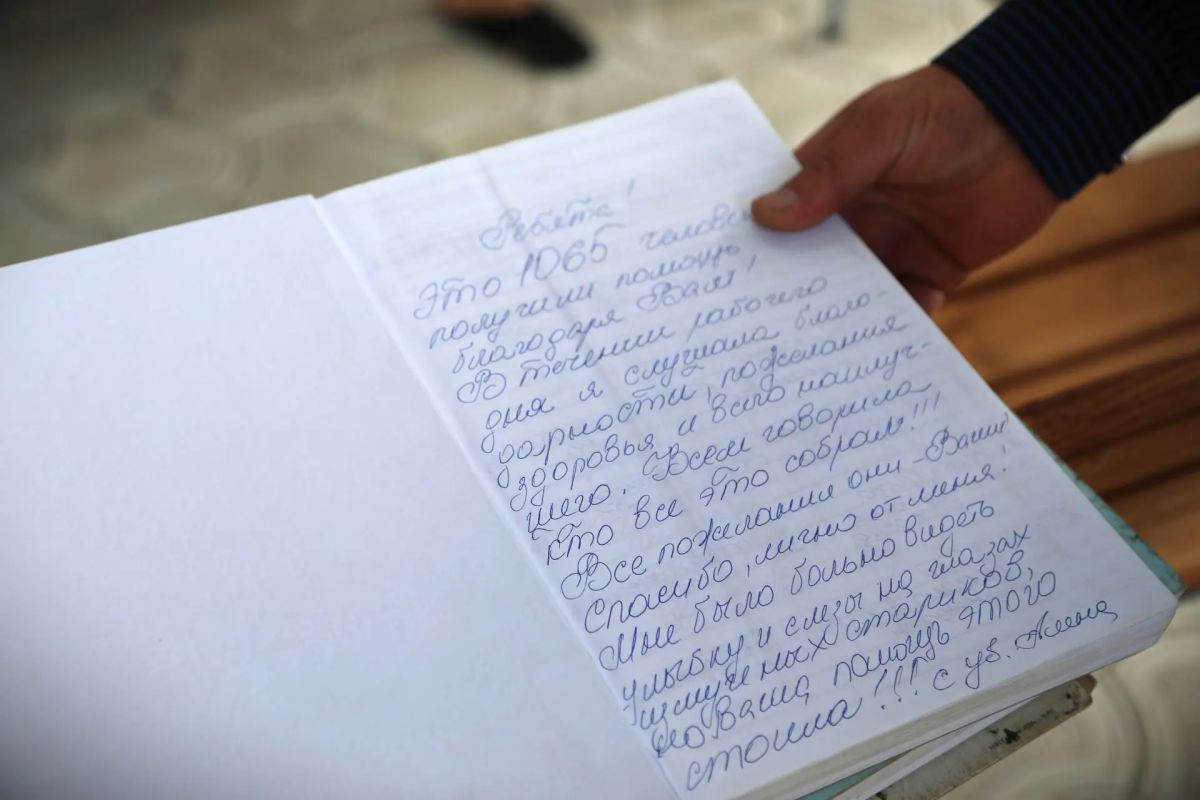 Ребята!
Это 1065 человек
получили помощь
благодаря Вам!
В течении рабочего
дня я слушала благо-
дарности, пожелания
здоровья и всего наилуч-
шего. Всем говорила
кто все это собрал!!!
Все пожелания они - Ваши!
Спасибо, лично от меня!
Мне было больно видеть
улыбку и слезы на глазах
измученых стариков,
но Ваша помощь этого
стоила!!! С ув. Алена